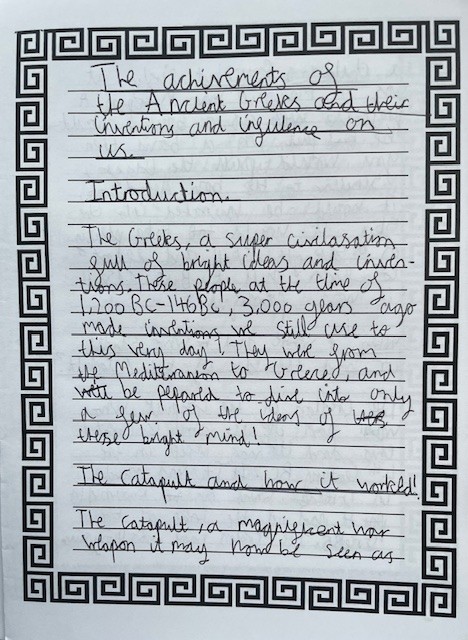 The achivements of
the Ancient Greeks and their
inventions and infulence on
us.
Introduction.
The Greeks, a super civilasation
full of bright ideas and inven-
tions. These people at the time of
1,200 BC-146BC, 3,000 years ago
made inventions we still use to
this very day! They were from
the Mediteranean to Greece, and
be pepared to dive into only
a few of the ideas of
these bright mind!
The catapult and how it worked!
The catapult, a magnificent war
weapon it may now be seen as